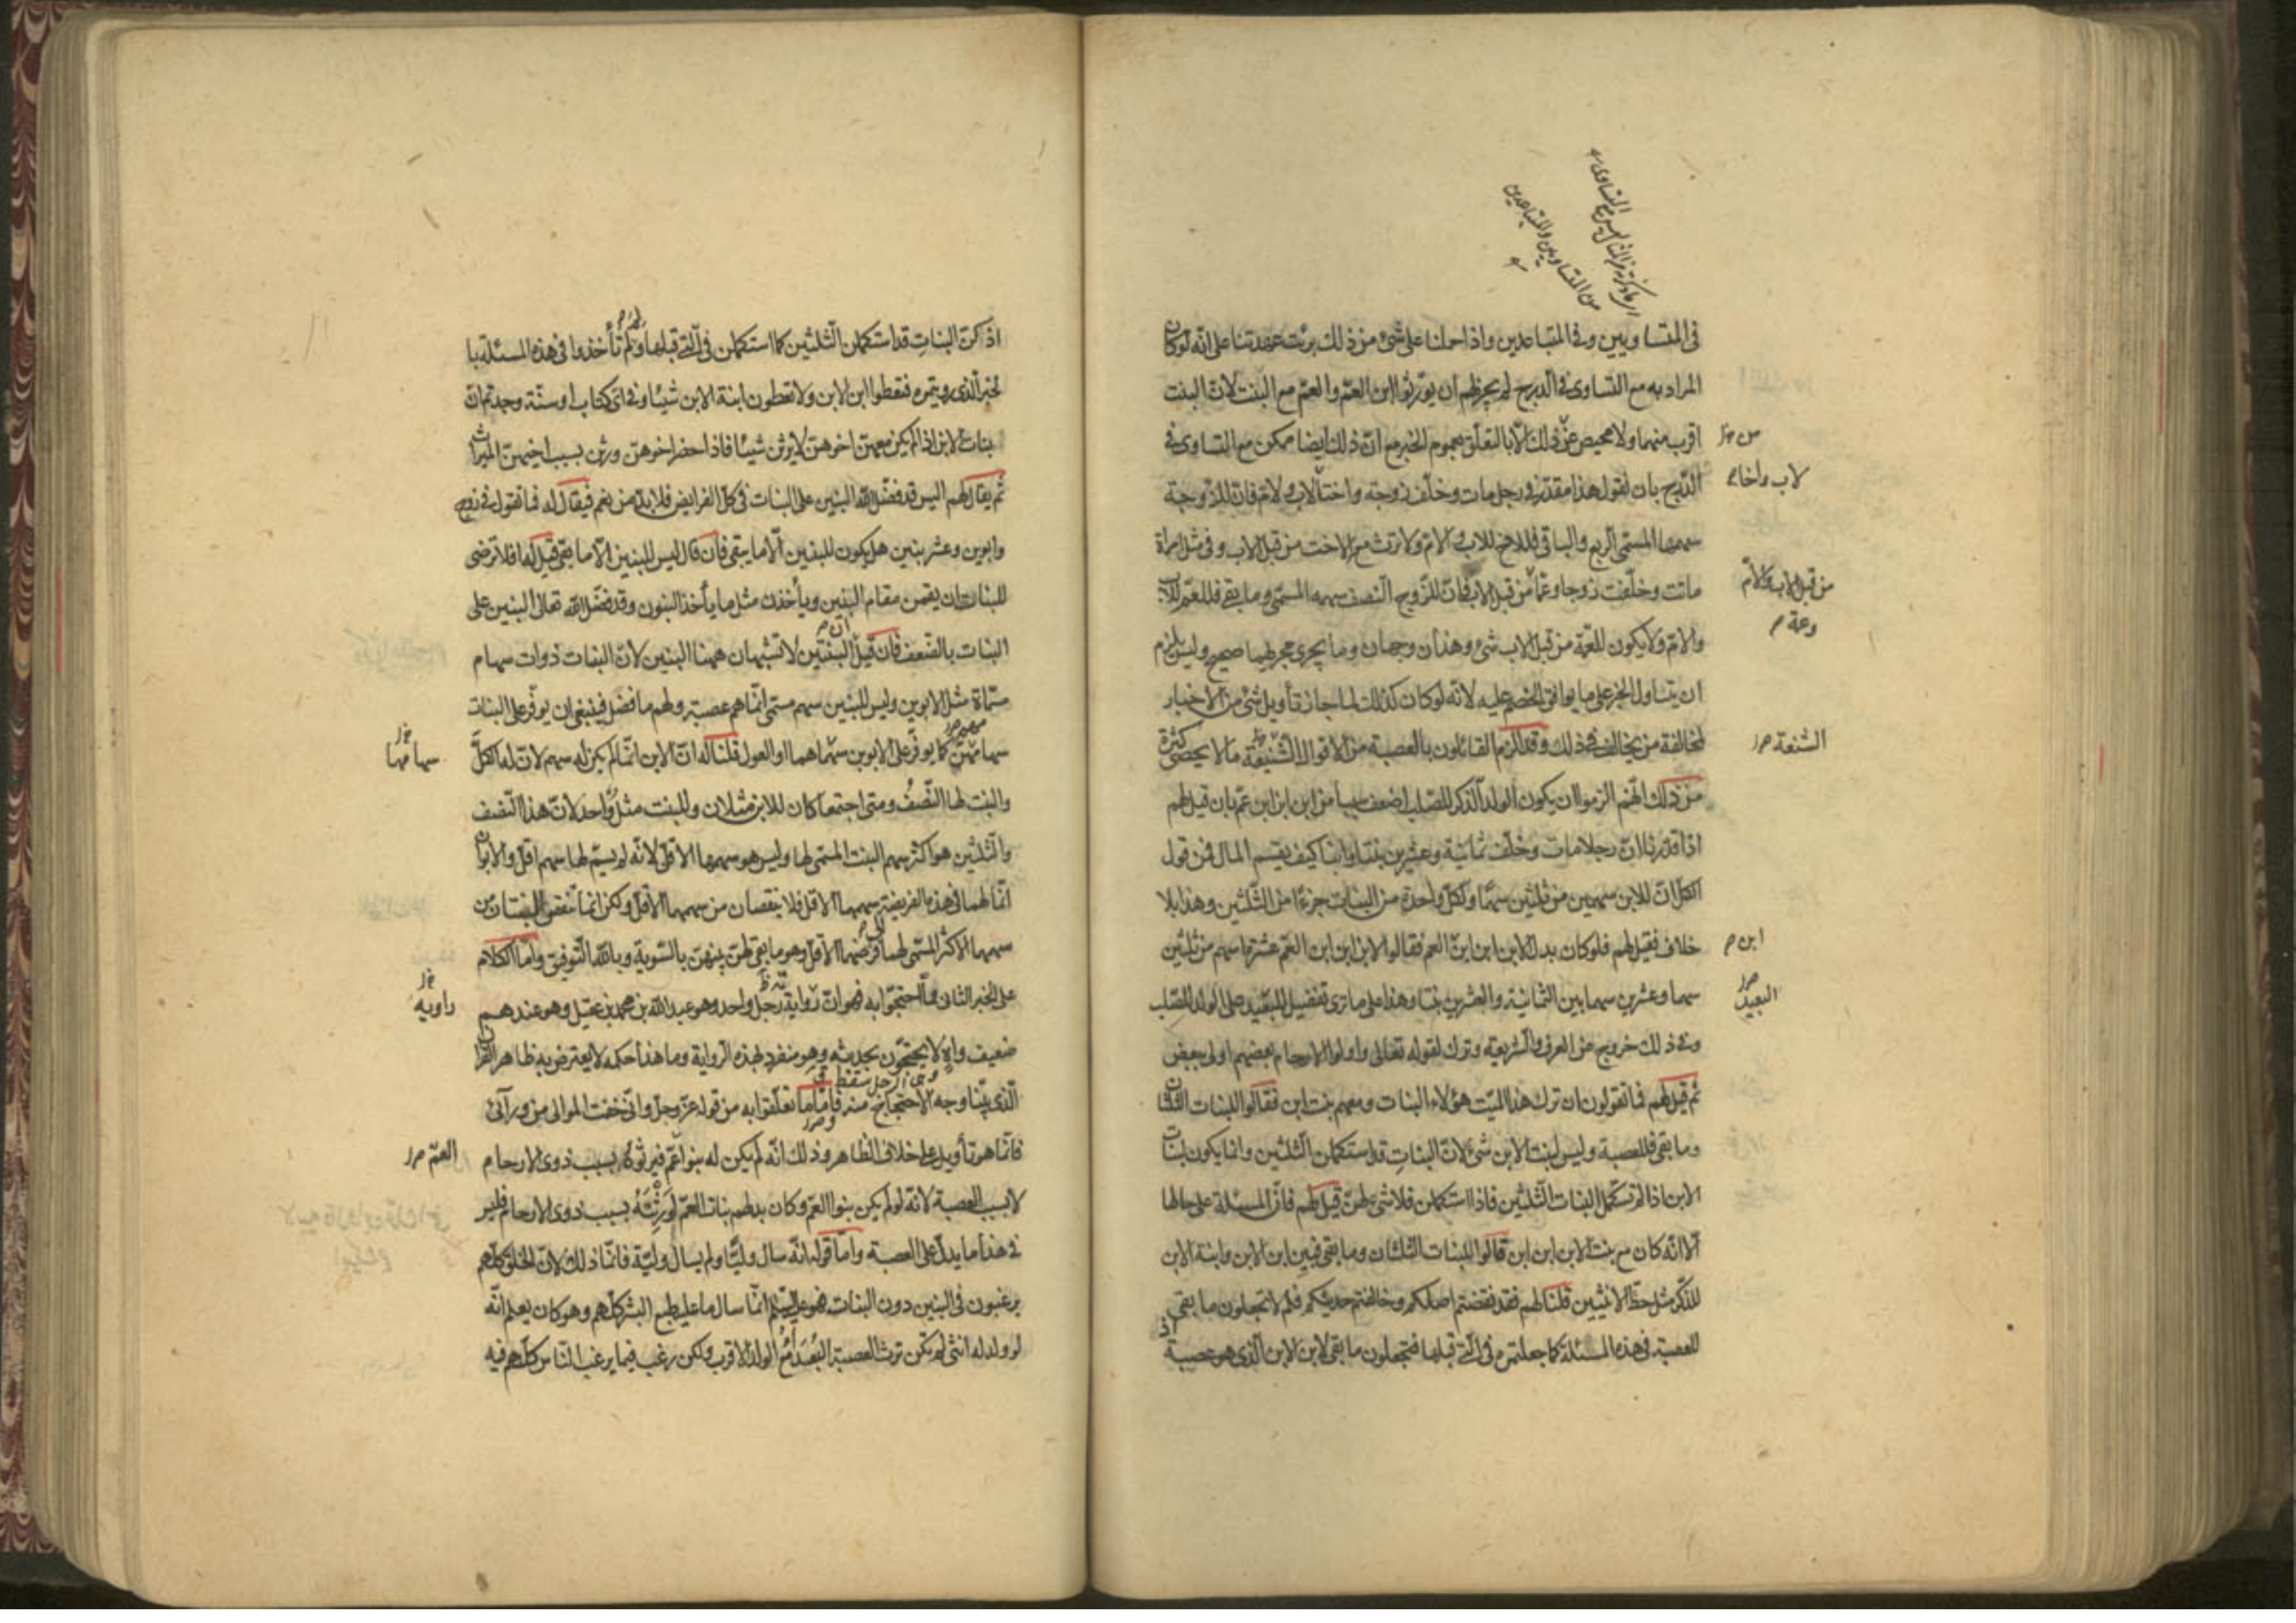 في المتساويين وفي المتباعدين واذا حملنا على شئ من ذلك برئت عهدتنا على انّه لو كان
المراد به مع التساوى في الدرج لم يجز لهم ان يورّثوا ابن العمّ والعمّ مع البنت لانّ البنت
اقرب منهما ولا محيص عن ذلك الّا بالتعلّق بعموم الخبر مع انّ ذلك ايضا ممكن مع التساوى في
الدّرج بان نقول هذا مقدّر في رجل مات وخلّف زوجة واختا لاب ولامّ فانّ للزوجة
سهمها المسمّى الربع والباقي فللاخ للاب والامّ ولا ترث معه الاخت من قبل الاب وفي مثل امراة
ماتت وخلّفت زوجا وعمّا من قبل الاب فانّ للزّوج النصف سهمه المسمّى وما بقي فللعمّ للاب
والامّ ولا يكون للعمّة من قبل الاب شئ وهذان وجهان وما يجرى مجريهما صحيح وليس يلزم
ان يتناول الخبر على ما يوافق الخصم عليه لانّه لو كان كذلك لما جاز تأويل شئ من الاخبار
لمخالفة من يخالف في ذلك وقد الزم القائلون بالعصبة من الاقوال الشنيعة ما لا يحصى كثرة
من ذلك انّهم الزموا ان يكون الولد الذكر للصّلب اضعف سببا من ابن ابن ابن عمّ بان قيل لهم
اذا قدّرنا انّ رجلا مات وخلّف ثمانية وعشرين بنتا وابنا كيف يقسم المال فمن قول
الكلّ انّ للابن سهمين من ثلثين سهما ولكلّ واحدة من البنات جزءا من الثّلثين وهذا بلا
خلاف فقيل لهم فلو كان بدل الابن ابن ابن العم فقالوا لابن ابن ابن العمّ عشرة اسهم من ثلثين
سهما وعشرين سهما بين الثمانية والعشرين بنتا وهذا على ما ترى تفضيل للبعيد على الولد للصّلب
وفي ذلك خروج عن العرف والشّريعة وترك لقوله تعالى واولوا الارحام بعضهم اولى ببعض
ثم قيل لهم فما تقولون ان ترك هذا الميّت هؤلاء البنات ومعهم بنت ابن فقالوا للبنات الثلثان
وما بقي فللعصبة وليس لبنت الابن شئ لانّ البنات قد استكملن الثّلثين وانما يكون لبنات
الابن اذا لم تستكمل البنات الثّلثين فاذا استكملن فلا شئ لهنّ قيل لهم فانّ المسئلة على حالها
الّا انّه كان مع بنت الابن ابن ابن قالوا للبنات الثلثان وما بقي فبين ابن الابن وابنة الابن
للذّكر مثل حظّ الانثيين قلنا لهم فقد نقضتم اصلكم وخالفتم حديثكم فلم لا تجعلون ما بقي
للعصبة في هذه المسئلة كما جعلتموه في الّتي قبلها فتجعلون ما بقي لابن الابن الّذى هو عصبة
من
لاب واخا
من قبل الاب والامّ
وعمة
الشنعة
ابن
البعيد
من المتساويين والمتباعدين
اذ كنّ البنات قد استكملن الثلثين كما استكملن في الّتي قبلها ولم تأخذوا في هذه المسئلة با
لخبر الّذى رويتموه فتعطوا ابن الابن ولا تعطون ابنة الابن شيئا وفي اىّ كتاب او سنّة وجدتم انّ
بنات الابن اذا لم يكن معهنّ اخوهنّ لا يرثن شيئا فاذا حضر اخوهنّ ورثن بسبب اخيهنّ الميراث
ثم يقال لهم اليس قد فضّل اللّه البنين على البنات في كلّ الفرايض فلا بدّ من نعم فيقال له فما تقول في زوج
وابوين وعشر بنين هل يكون للبنين الّا ما يبقى فان قال ليس للبنين الّا ما بقي قيل له افلا ترضى
للبنات ان يقمن مقام البنين ويأخذن مثل ما يأخذ البنون وقد فضّل اللّه تعالى البنين على
البنات بالضّعف فان قيل انّ البنتين لا تشبهان ههنا البنين لانّ البنات ذوات سهام
مسمّاة مثل الابوين وليس للبنين سهم مسمّى انّما هم عصبة ولهم ما فضل فينبغى ان يوفّر على البنات
سهامهنّ كما يوفّر على الابوين سهماهما او العول قلنا له انّ الابن انّما لم يكن له سهم لانّ له الكلّ
والبنت لها النّصف ومتى اجتمعا كان للابن مثلان وللبنت مثل واحد لانّ هذا النّصف
والثّلثين هو اكثر سهم البنت المسمّى لها وليس هو سهمها الاقلّ لانّه لم يسمّ لها سهم اقلّ والابوان
انّما لهما في هذه الفريضة سهمهما الاقلّ فلا ينقصان من سهمهما الاقلّ ولكن انما تنقص البنتان من
سهمها الاكثر المسمّى لهما الى فرضهما الاقلّ وهو ما بقي لهنّ بينهنّ بالسّوية وباللّه التّوفيق وامّا الكلام
على الخبر الثاني ممّا احتجّوا به فهو انّ رواية رجل واحد وهو عبد اللّه بن محمد بن عقيل وهو عندهم
ضعيف واه لا يحتجّون بحديثه وهو منفرد بهذه الرّواية وما هذا حكمه لا يعترض به ظاهر القرآن
الّذى بيّنا وجه الاحتجاج منه فامّا ما تعلّقوا به من قوله عزّ وجلّ وانّى خفت الموالى من ورآئى
فانّما هو تأويل على خلاف الظّاهر وذلك انّه لم يكن له بنو اعمّ فيرثونه بسبب ذوى الارحام
لا بسبب العصبة لانّه لو لم يكن بنوا العمّ وكان بدلهم بنات العمّ لورثنه بسبب ذوى الارحام فليس
في هذا ما يدلّ على العصبة وامّا قوله انّه سال وليّا ولم يسال وليّة فانّما ذلك لانّ الخلق كلّهم
يرغبون في البنين دون البنات فهو عليه السّلم انّما سال ما عليه طبع البشر كلّهم وهو كان يعلم انّه
لو ولد له انثى لم تكن ترث العصبة البعدآء مع الولد الاقرب ولكن رغب فيما يرغب النّاس كلّهم فيه
سهامها
راويه
العمّ